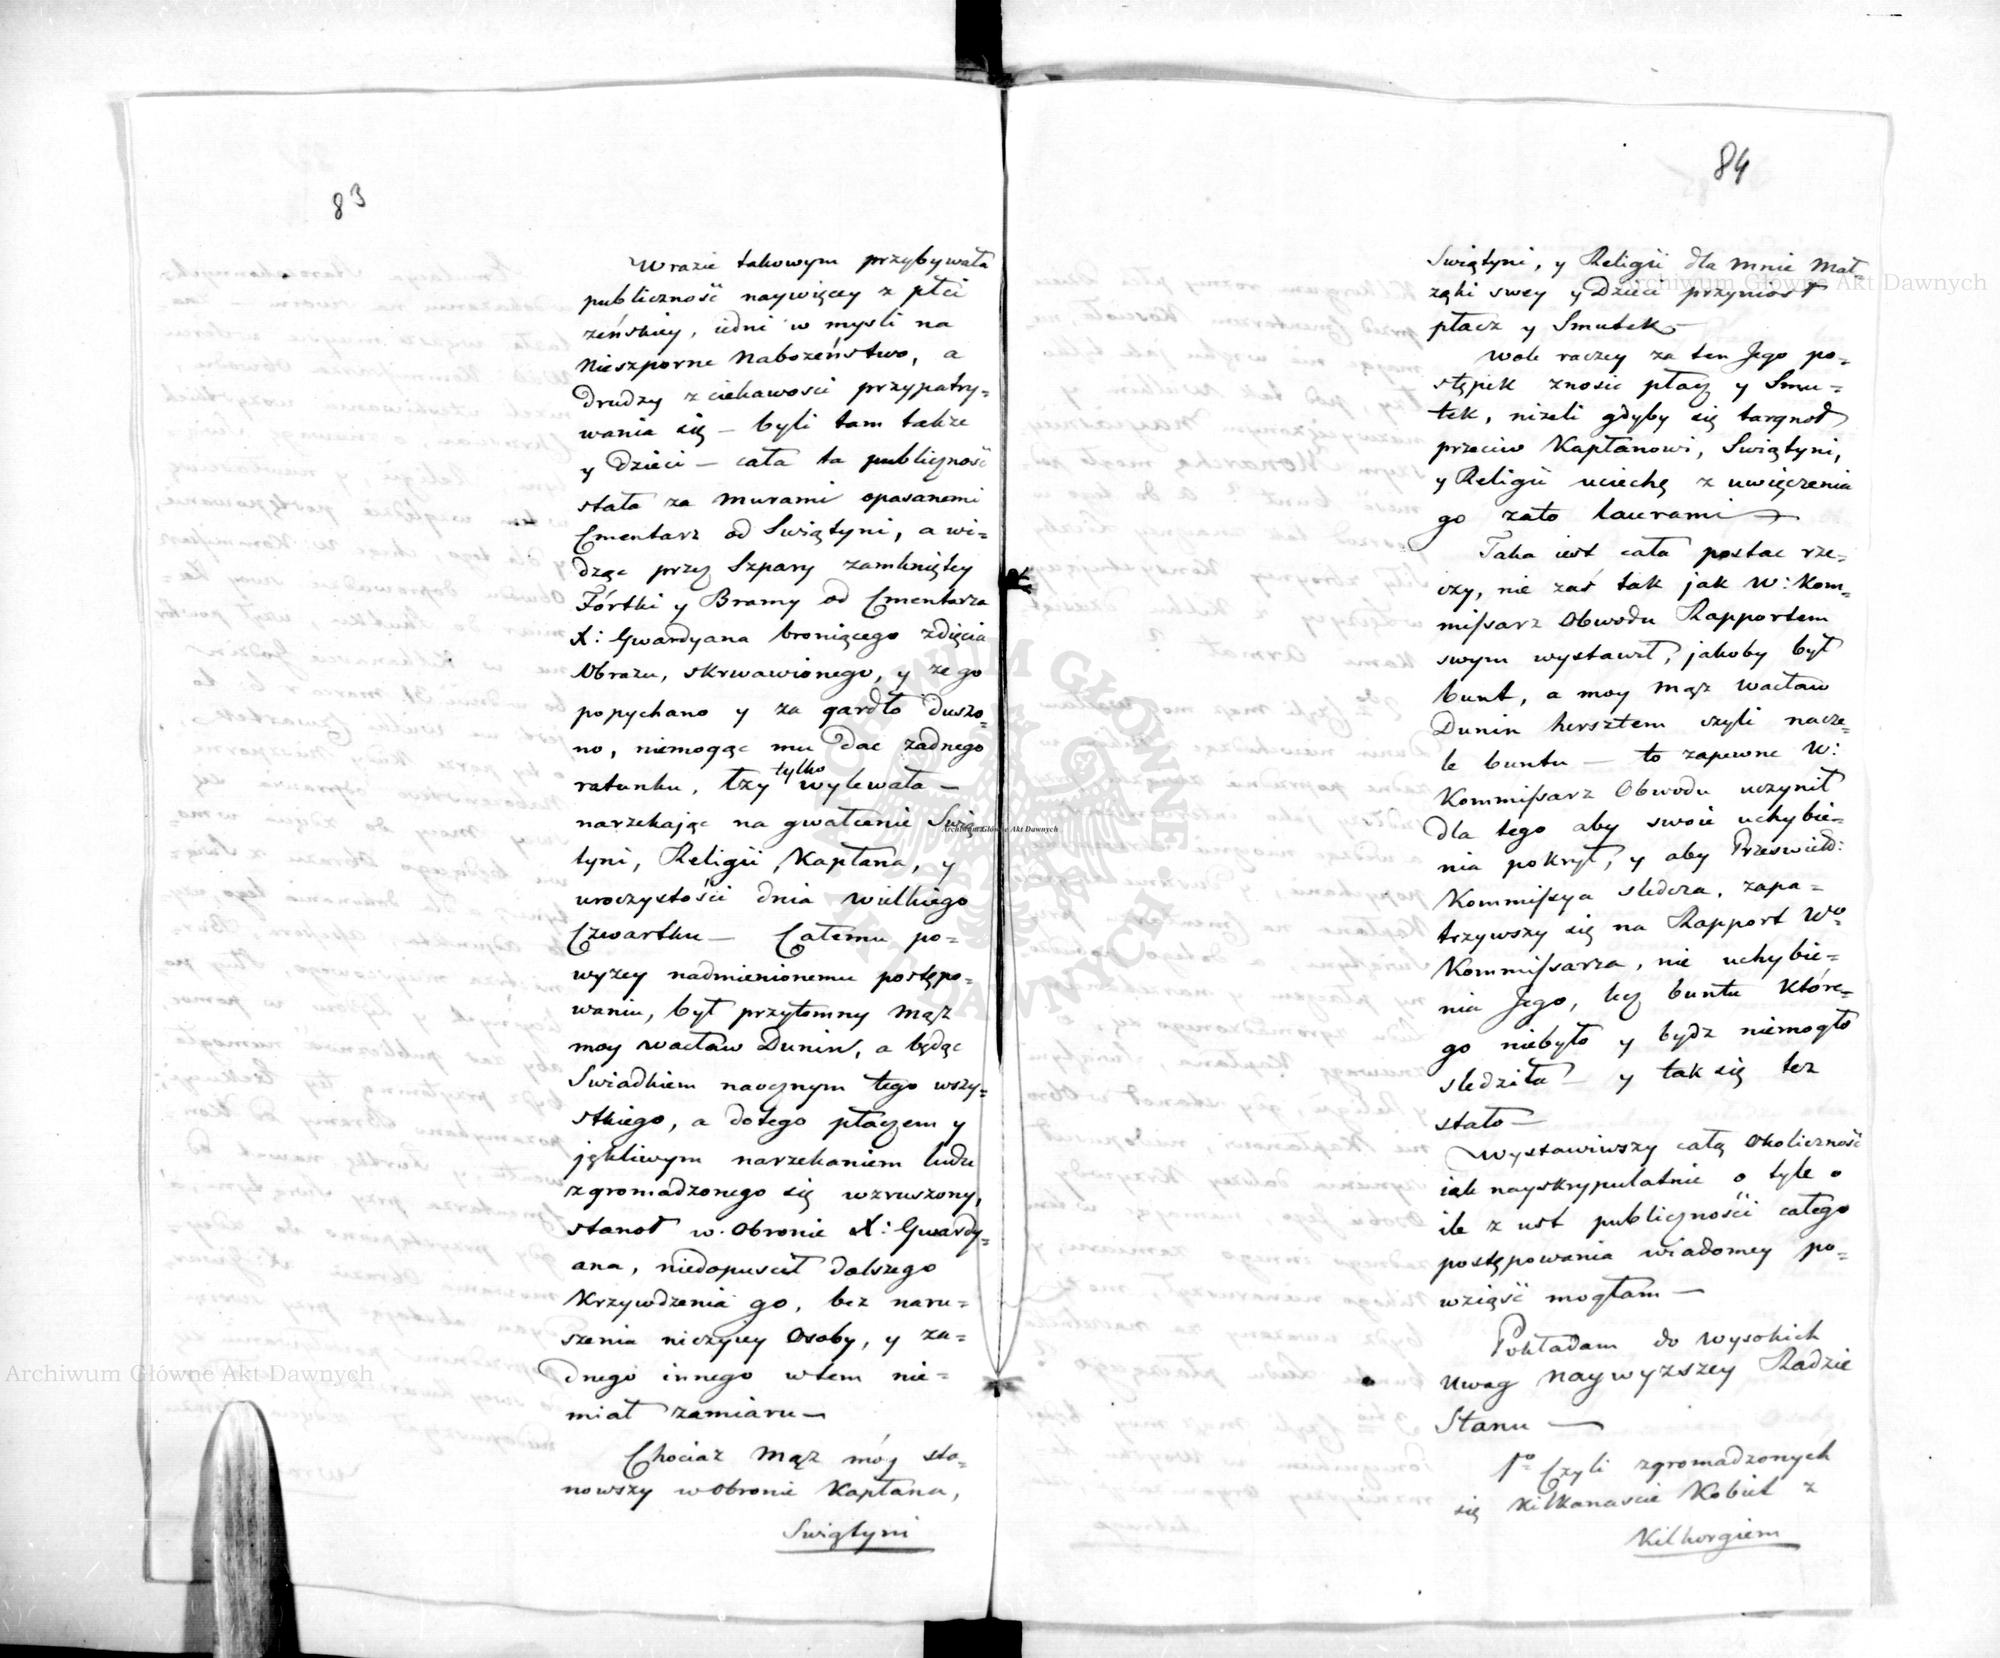 83
Wrazie takowym przybywała
publiczność naywięcey z płci
żeńskiey, iedni w mysli na
Nieszporne Nabożeństwo, a
Drudzy z ciekawosci przypatry=
wania się — byli tam także
y Dzieci — cała ta publiczność
stała za Murami opasanemi
Cmentarz od Swiątyni, a wi=
dząc przez Szpary zamkniętey
Fórtki y Bramy od Cmentarza
X: Gwardyana broniącego zdięcia
Obrazu, skrwawionego, y ze go
popychano y za gardło duszo=
no, niemogąc mu dac zadnego
ratunku, łzy tylko wylewała —
narzekając na gwałcenie Swią
tyni, Religii, Kapłana, y
uroczystości dnia wielkiego
Czwartku — Całemu po=
wyzey nadmienionemu postępo=
waniu, był przytomny Mąż
moy Wacław Dunin, a będąc
Swiadkiem naocznym tego wszy=
stkiego, a dotego płaczem y
jękliwym narzekaniem ludu
zgromadzonego się wzruszony,
stanoł w Obronie X: Gwardy=
ana, niedopuscił dalszego
Krzywdzenia go, bez naru=
szenia niczyiey Osoby, y za=
dnego innego wtem nie=
miał zamiaru —
Chociaz Mąż móy sta=
nowszy w Obronie Kapłana,
Swiątyni
84
Swiątyni, y Religii dla Mnie Mał=
żąki swey y Dzieci przyniosł
płacz y Smutek —
Wole raczey za ten Jego po=
stępek znosic płacz y Smu=
tek, niżeli gdyby się targnoł
przeciw Kapłanowi, Swiątyni,
y Religii uciechę z uwięczenia
go zato laurami —
Taka iest cała postac rze=
czy, nie zaś tak jak W: Kom=
missarz Obwodu Rapportem
swym wystawił, jakoby był
bunt, a moy Mąż Wacław
Dunin hersztem czyli nacze=
le buntu — to zapewne W:
Kommissarz Obwodu uczynił
dla tego aby swoie uchybie=
nia pokrył, y aby Prześwietd:
Kommissya sledcza, zapa=
trzywszy się na Rapport Wo
Kommissarza, nie uchybie=
nia Jego, lecz buntu Które=
go niebyło y bydz niemogło
sledziła — y tak się tez
stało —
Wystawiwszy całą Okoliczność
iak nayskrypulatnie o tyle o
ile z ust publiczności całego
postępowania wiadomey po=
wziąść mogłam —
Pokładam do Wysokich
Uwag naywyzszey Radzie
Stanu —
1o Czyli zgromadzonych
się kilkanascie Kobiet z
Kilkorgiem
Archiwum Główne Akt Dawnych
Archiwum Główne Akt Dawnych
Archiwum Główne Akt Dawnych
ARCHIWUM GŁÓWNE AKT DAWNYCH